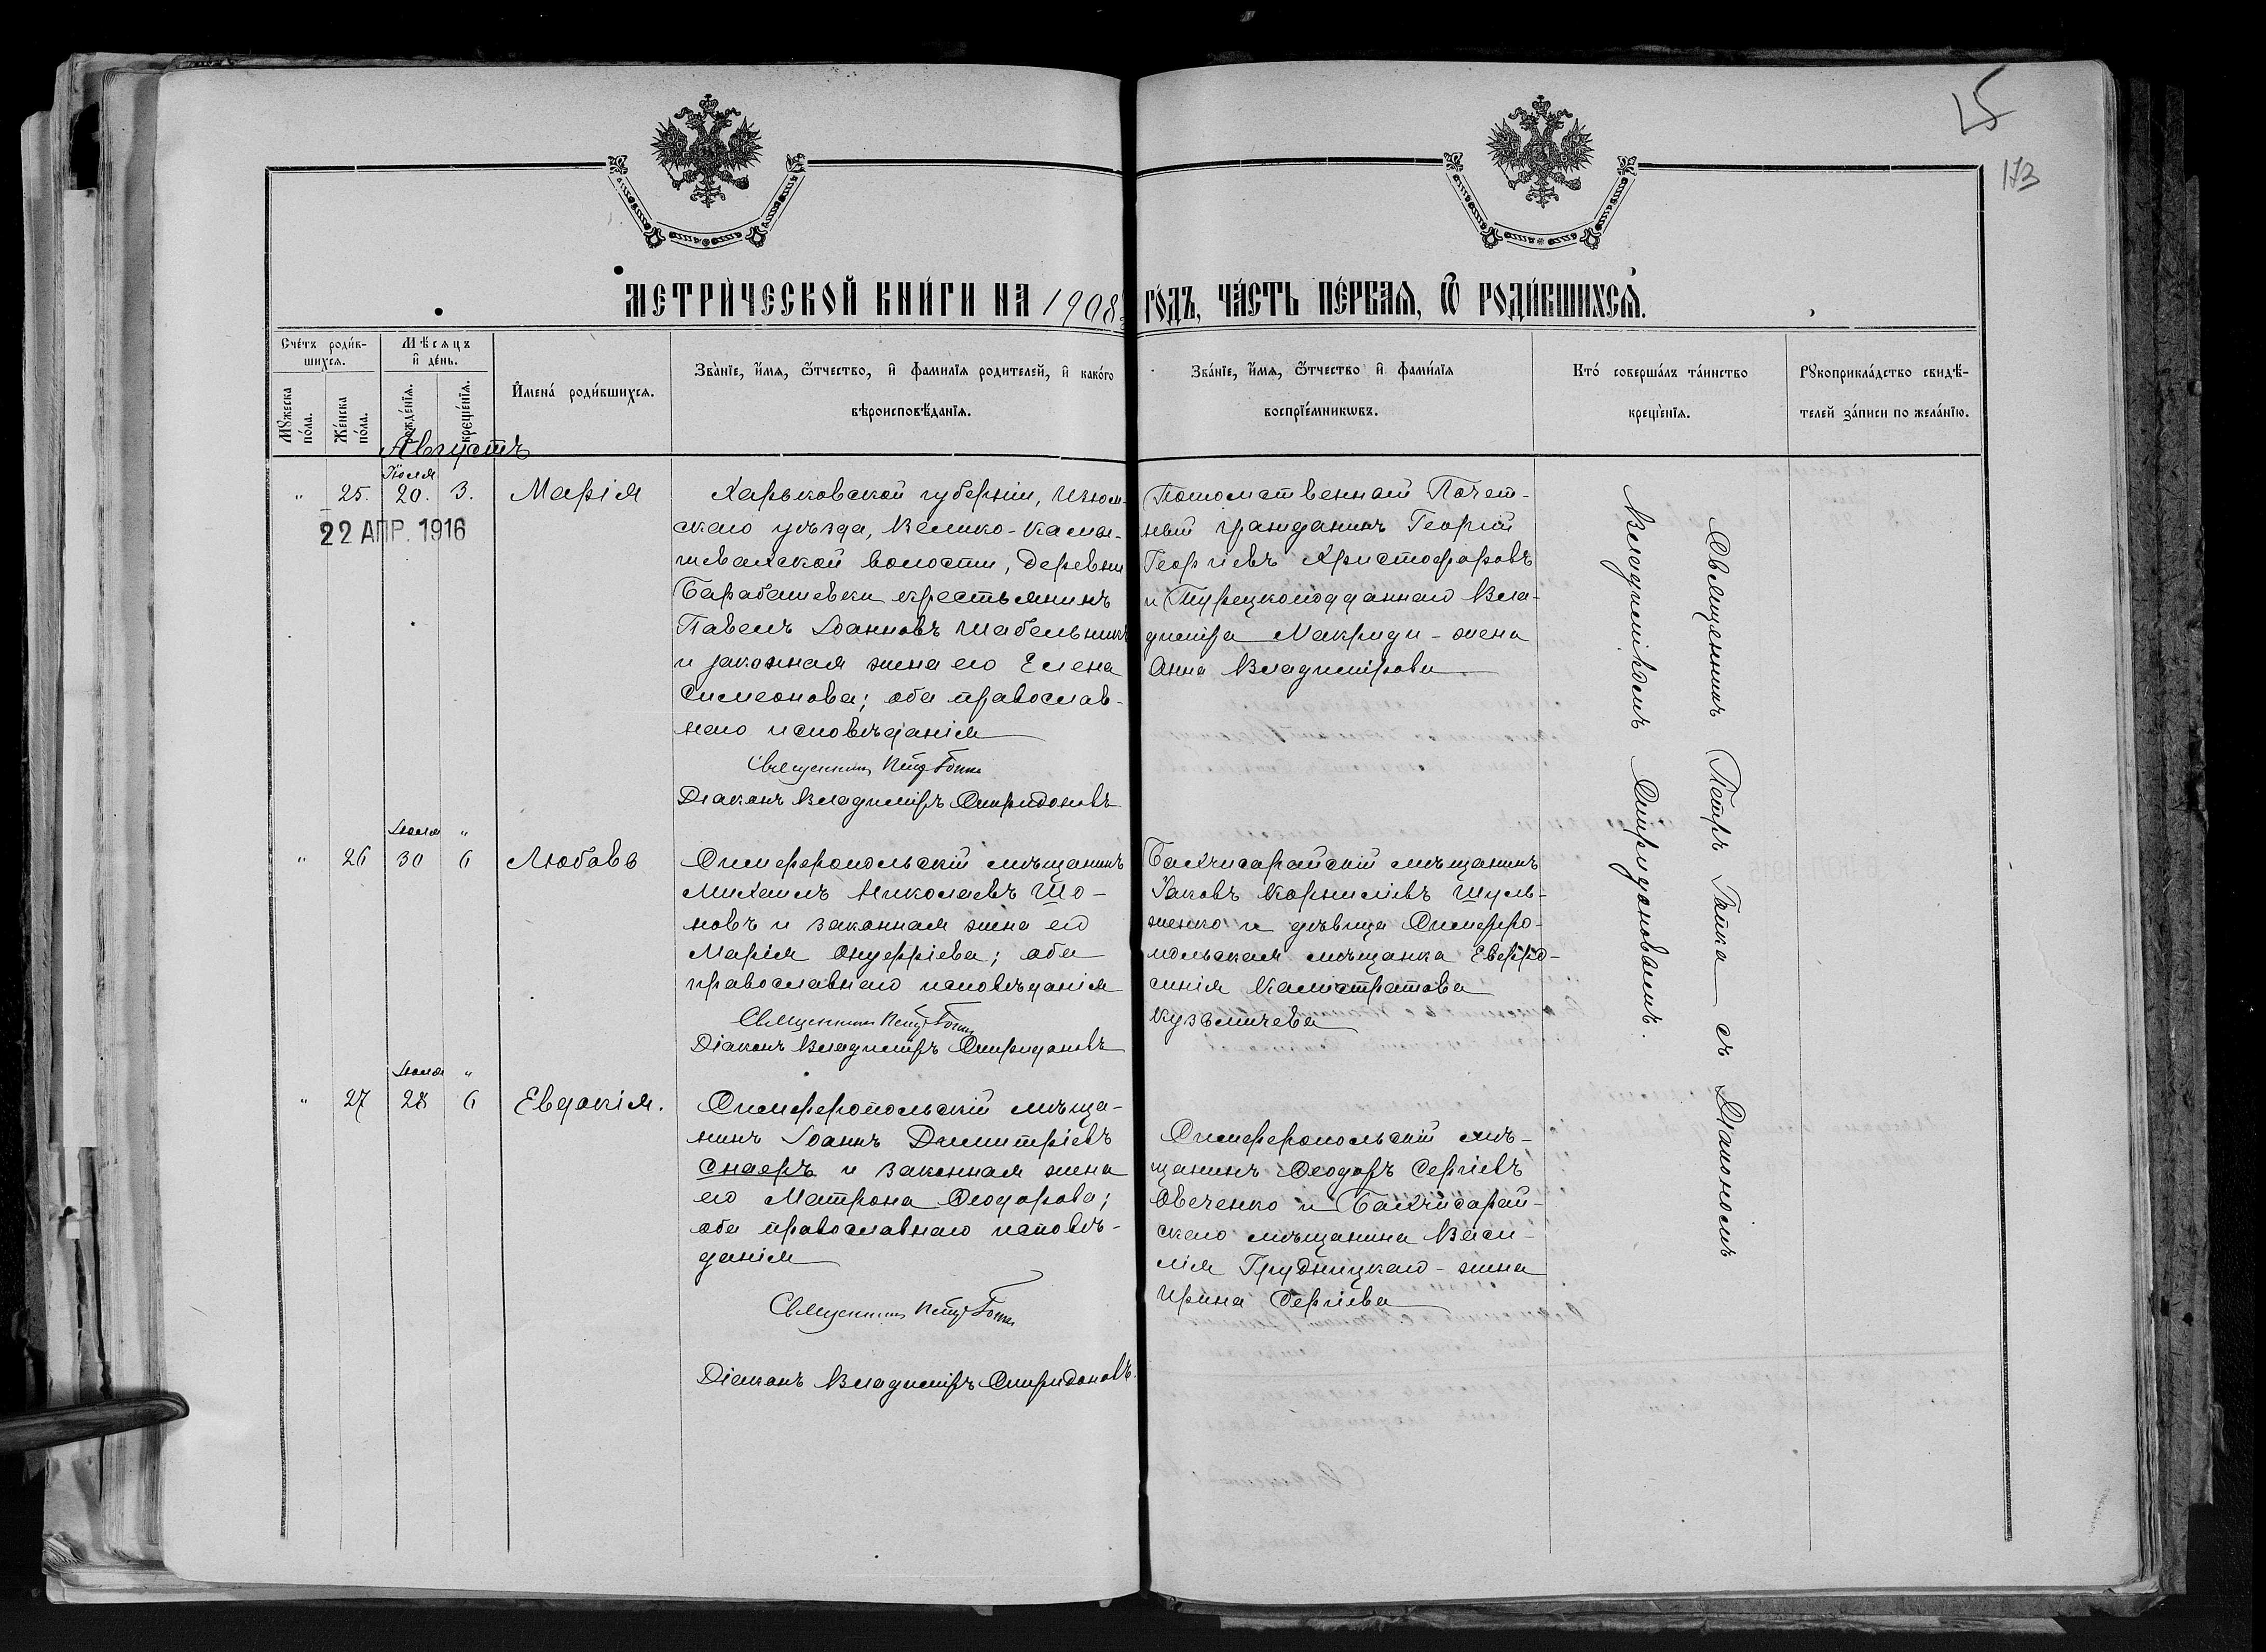 25
173
МЕТРИ́ЧЕСКОЙ КНИ́ГИ НА 1908 ГО́ДЪ, ЧА́СТЬ ПЕ́РВАѦ, Ѿ РОДИ́ВШИХСѦ.
Сче́тъ роди́в-
шихсѧ.
Мꙋжеска
по́ла.
Же́нска
по́ла.
Мѣ́сѧцъ
и҆ де́нь.
рожде́нїѧ.
креще́нїѧ.
И҆мена́ роди́вшихсѧ.
Зва́нїе, и҆́мѧ, ѻ҆́тчество, и҆ фами́лїѧ родителей, и҆ како́го
вѣроисповѣ́данїѧ.
Зва́нїе, и҆́мѧ, ѻ҆́тчество и҆ фами́лїѧ
воспрїе́мникѡвъ.
Кто́ соверша́лъ та́инство
креще́нїѧ.
Рꙋкоприкла́дство свидѣ́-
телей за́писи по жела́нїю.
Августъ
Іюля
" 25. 20. 3. Марія
22 АПР. 1916
Харьковской губерніи, Изюм-
скаго уѣзда, Велико-Камы-
шевахской волости, деревни
Барабашевки крестьянинъ
Павелъ Іоанновъ Шабельникъ
и законная жена его Елена
Симеонова; оба православ-
наго исповѣданія
Священникъ Петръ Гойка
Діаконъ Владиміръ Спиридоновъ
Потомственный Почет-
ный гражданинъ Георгій
Георгіевъ Христофоровъ
и Турецкоподданнаго Вла-
диміра Макриди - жена
Анна Владимірова
Священникъ Петръ Гойка съ Діакономъ
Владиміромъ Спиридоновымъ.
Іюля "
" 26 30 6 Любовь
Симферопольскій мѣщанинъ
Михаилъ Николаевъ Шо-
новъ и законная жена его
Марія Онуфріева; оба
православнаго исповѣданія
Священникъ Петръ Гойка
Діаконъ Владиміръ Спиридоновъ
Бахчисарайскій мѣщанинъ
Іаковъ Корниліевъ Шуль-
женко и дѣвица Симферо-
польская мѣщанка Евфро-
синія Калистратова
Кузьмичева
Іюля "
" 27 28 6 Евдокія.
Симферопольскій мѣща-
нинъ Іоаннъ Димитріевъ
Снаеръ и законная жена
его Матрона Ѳеодорова;
оба православнаго исповѣ-
данія
Священникъ Петръ Гойка
Діаконъ Владиміръ Спиридоновъ.
Симферопольскій мѣ-
щанинъ Ѳеодоръ Сергіевъ
Овеченко и Бахчисарай-
скаго мѣщанина Васи-
лія Грудницкаго - жена
Ирина Сергіева